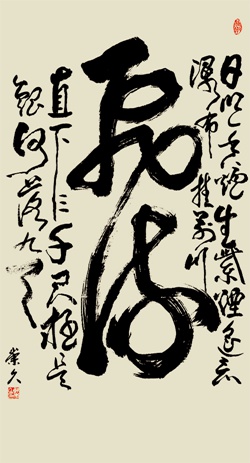 日照香炉生紫煙遥看
瀑布挂前川
飛流
直下三千尺疑是
銀河落九天